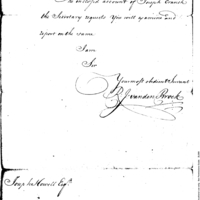 The enclosed account of Joseph Crance
the Secretary requests You will examine and
report on the same.
I am
Sir
Your most obedient Servant
P. J. vanden Broek
Joseph Howell Esqr.